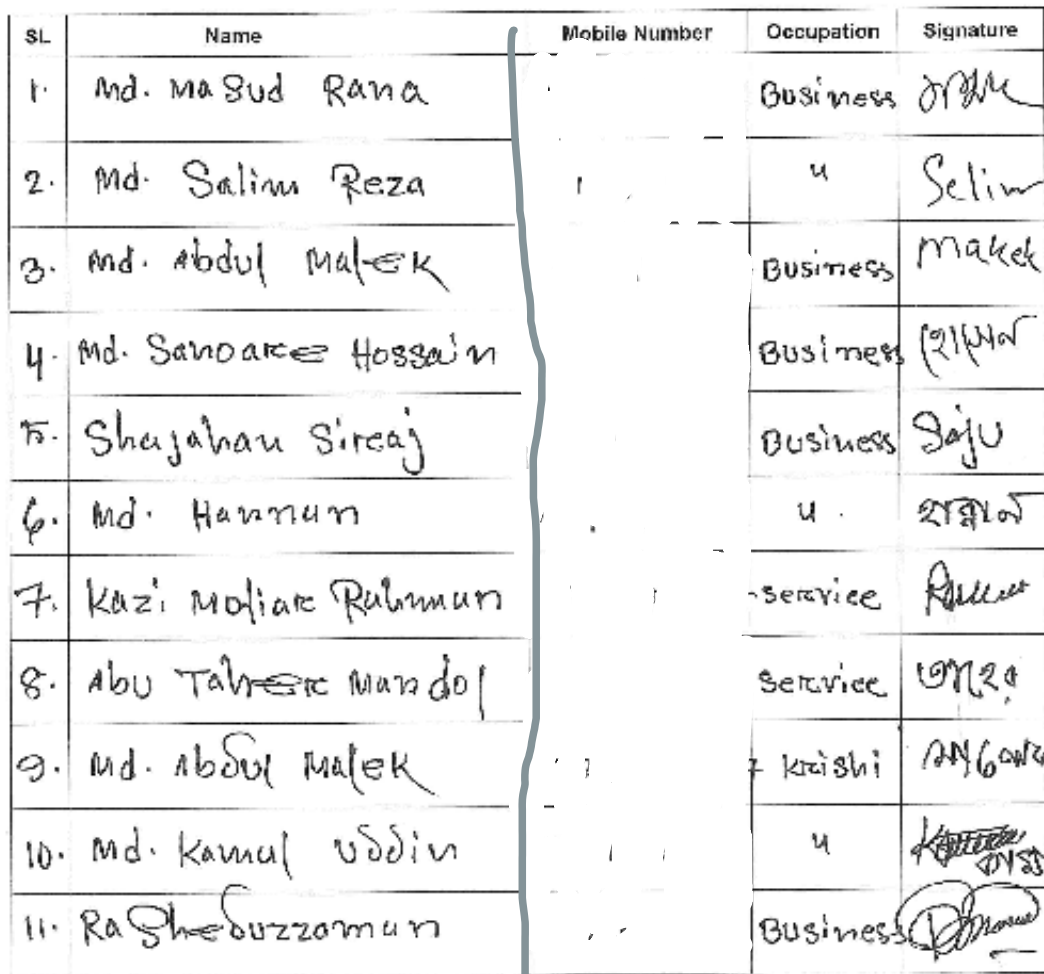 SL Name Mobile Number Occupation Signature
1. Md. Masud Rana Business
2. Md. Salim Reza 〃 Selim
3. Md. Abdul Malek Business Malek
4. Md. Sanoare Hossain Business হোসেন
5. Shajahan Sireaj Business Saju
6. Md. Hannan 〃 হান্নান
7. Kazi Motiar Rahman Service
8. Abu Taher Mandol Service
9. Md. Abdul Malek Krishi
10. Md. Kamal Uddin 〃
11. Rasheduzzaman Business